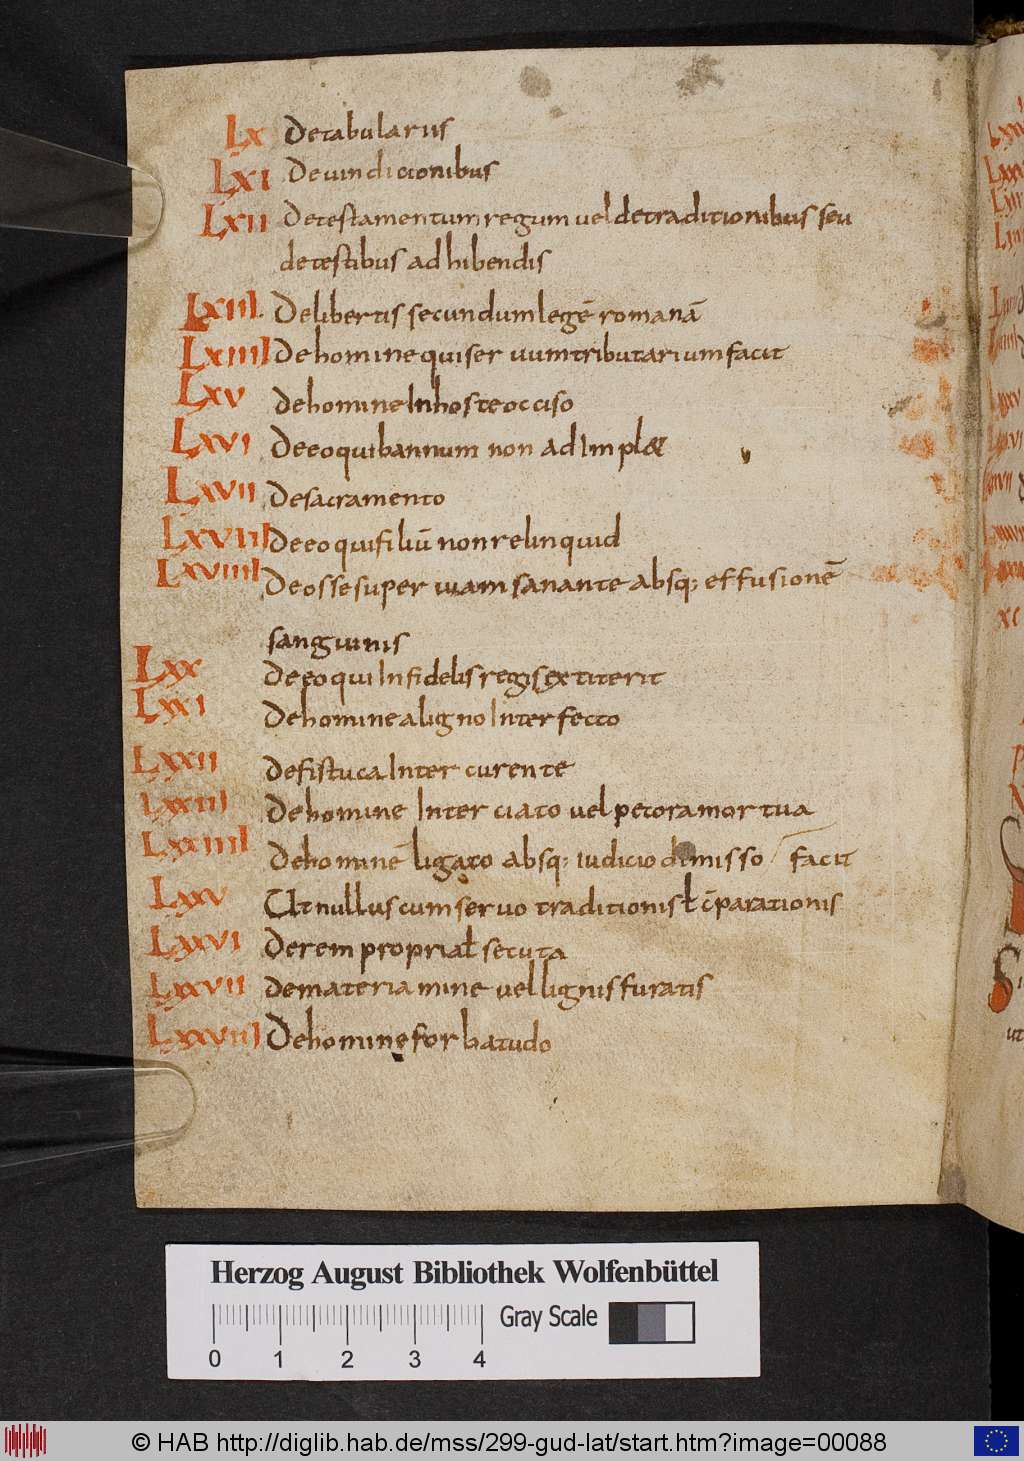 Lx Detabularus
Lxi Deuindicionibus
Lxii Detestamentum regum uel detraditionibus seu
detestibus adhibendis
Lxiii. Delibertis secundum legē romanā
Lxiiii De homine qui seruum tributarium facit
Lxv de homine In hoste occiso
Lxvi De eo qui bannum non ad Implet
Lxvii De sacramento
Lxviii De eo qui filiū non relinquid
Lxviiii De osse super uiam sanante absq; effusionē
sanguinis
Lxx De eo qui Infidelis regis extiterit
Lxxi De homine aligno Interfecto
Lxxii De fistuca Intercurente
Lxxiii De homine Inter ciato uel petora mortua
Lxxiiii De homine ligato absq; iudicio dimisso facit
Lxxv Ut nullus cum seruo traditionis ł cp̄arationis
Lxxvi De rem propria ł secuta
Lxxvii de materiamine uel lignis furatis
Lxxviii De homine forbatudo
Herzog August Bibliothek Wolfenbüttel
0 1 2 3 4 Gray Scale
© HAB http://diglib.hab.de/mss/299-gud-lat/start.htm?image=00088